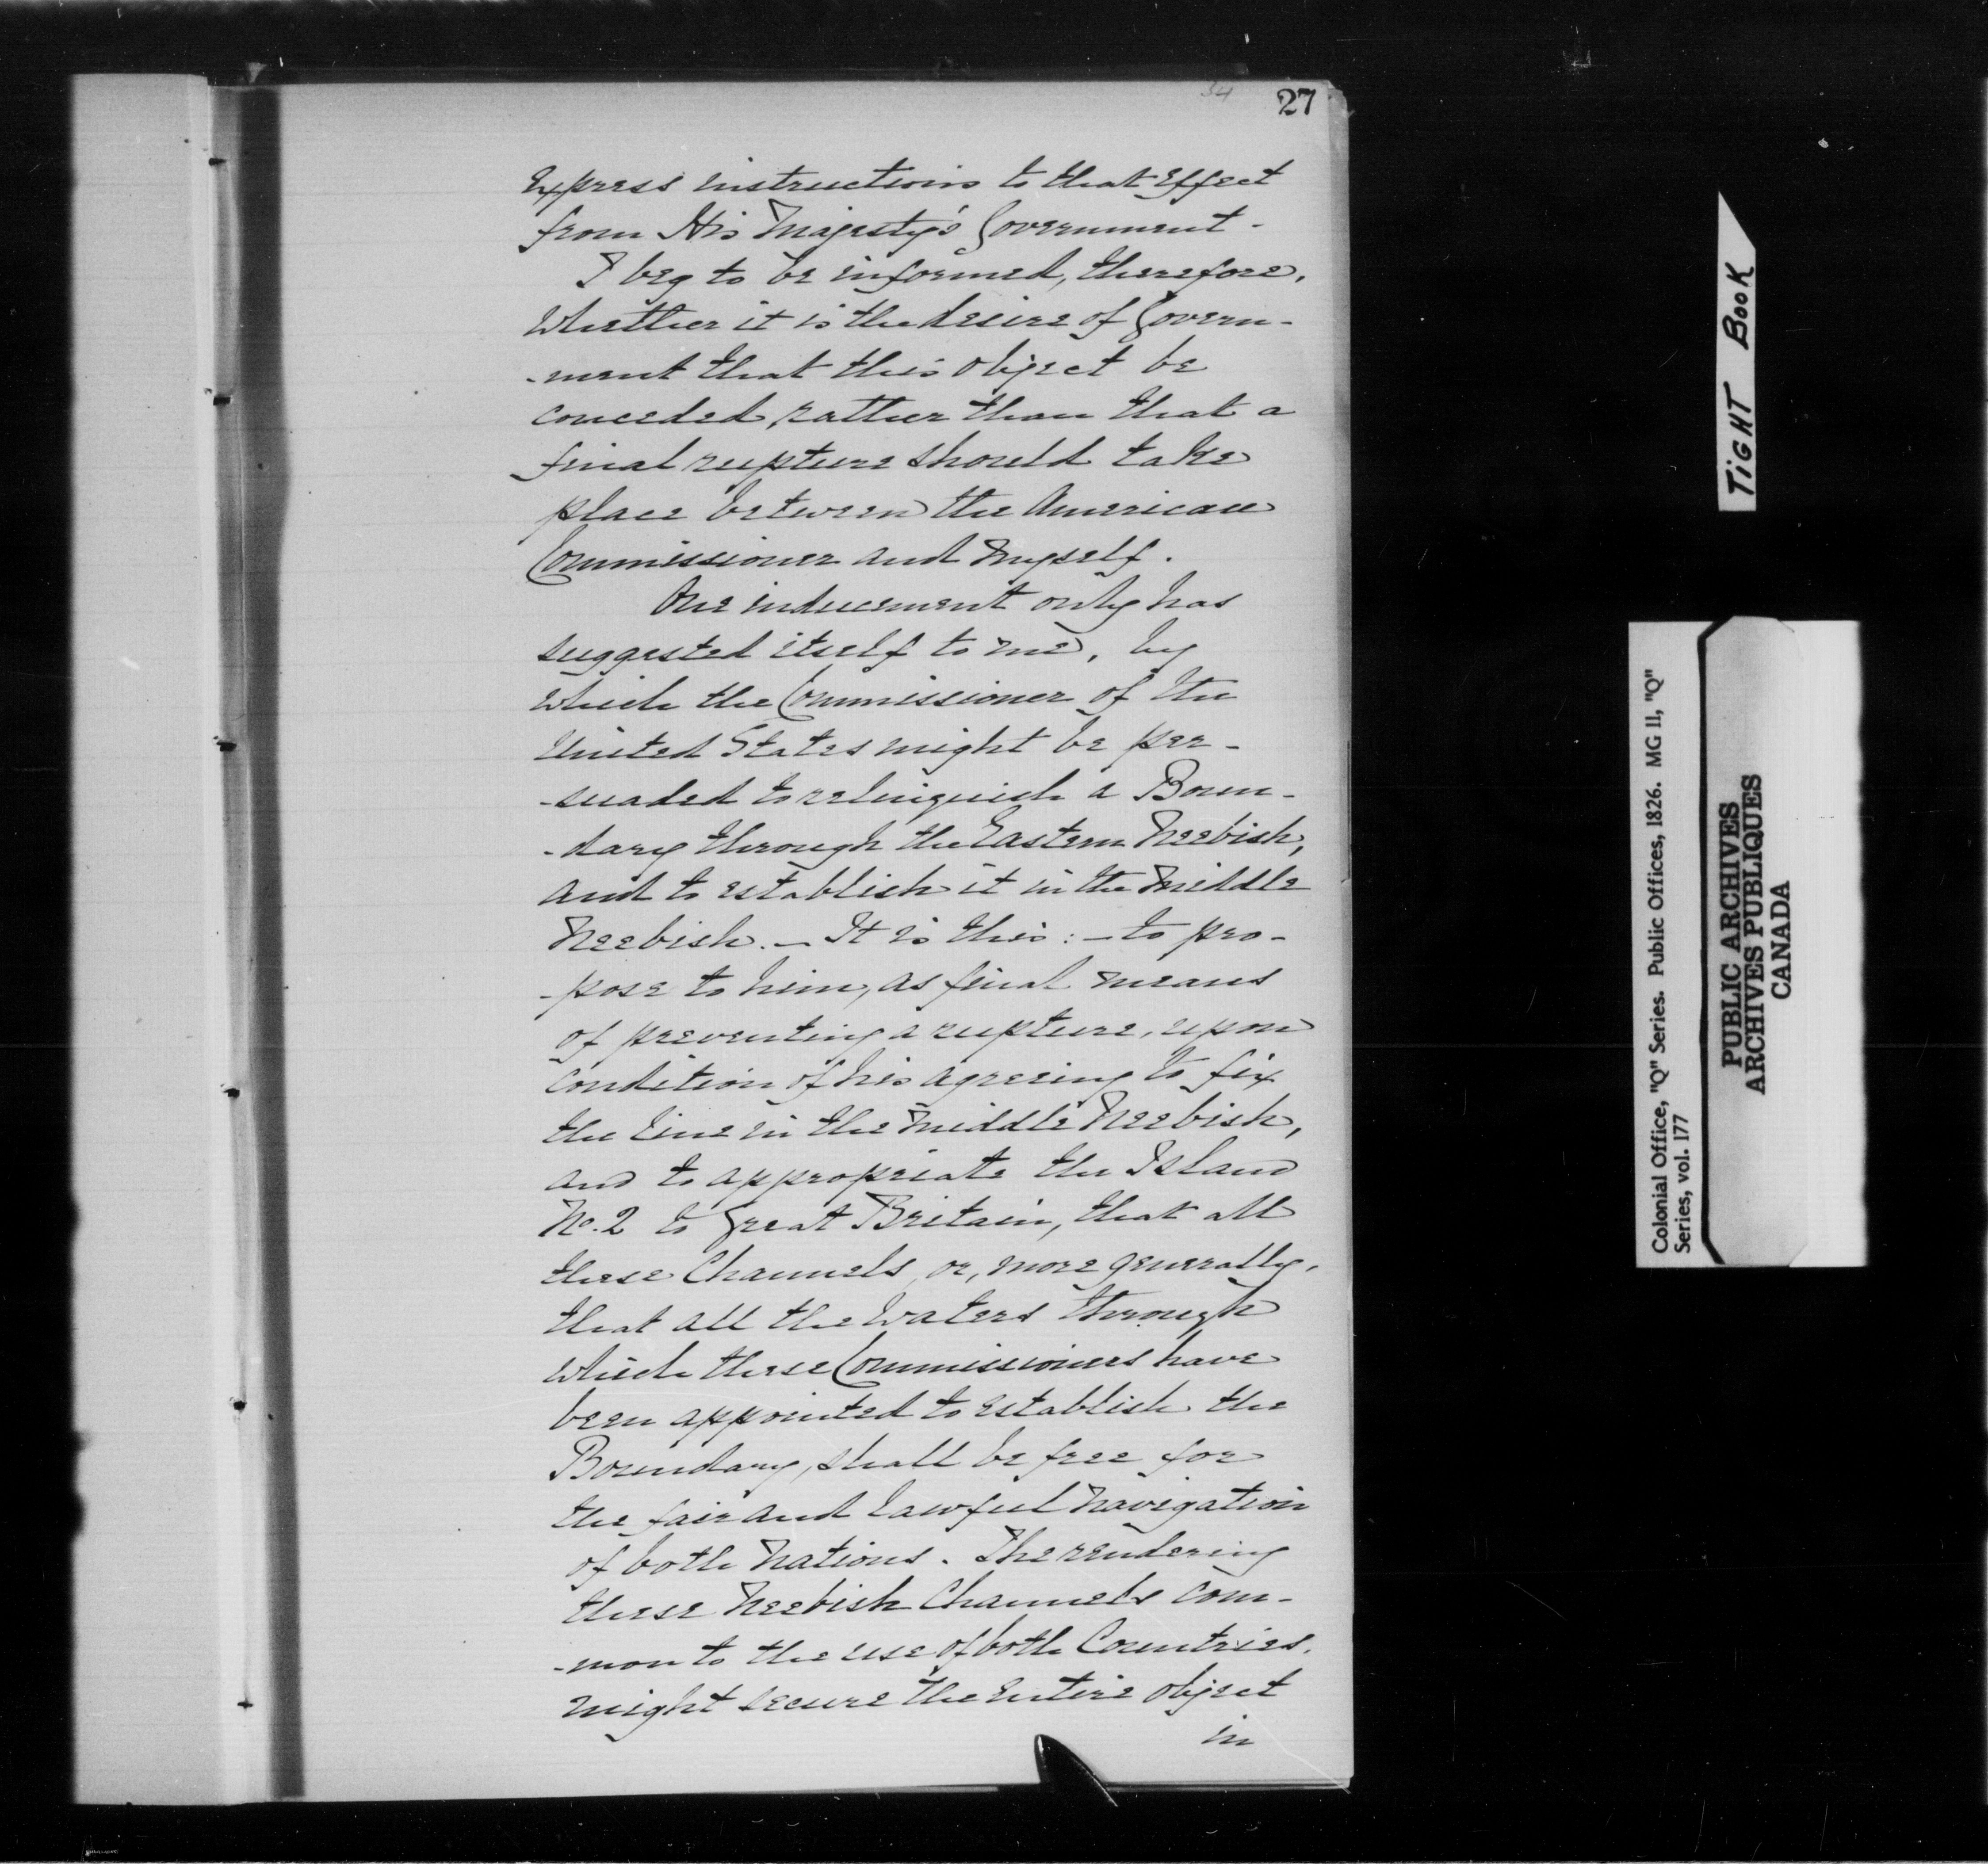 34
27
Express instructions to that Effect
from His Majesty's Government -
I beg to be informed, therefore,
Whether it is the desire of Govern-
-ment that this object be
conceded, rather than that a
final rupture should take
place between the American
Commissioner and Myself.
One inducement only has
suggested itself to me, by
which the Commissioner of the
United States might be per-
-suaded to relinquish a Boun-
-dary through the Eastern Neebish,
and to establish it in the Middle
Neebish. — It is this: — to pro-
-pose to him, as final means
of preventing a rupture, upon
condition of his agreeing to fix
the Line in the Middle Neebish,
and to appropriate the Island
No. 2 to Great Britain, that all
these Channels, or, more generally,
that all the Waters through
which these Commissioners have
been appointed to establish the
Boundary, shall be free for
the fair and lawful Navigation
of both Nations. The rendering
these Neebish Channels com-
-mon to the use of both Countries,
might secure the Entire object
in
TIGHT BOOK
Colonial Office, "Q" Series. Public Offices, 1826. MG 11, "Q"
Series, vol. 177
PUBLIC ARCHIVES
ARCHIVES PUBLIQUES
CANADA